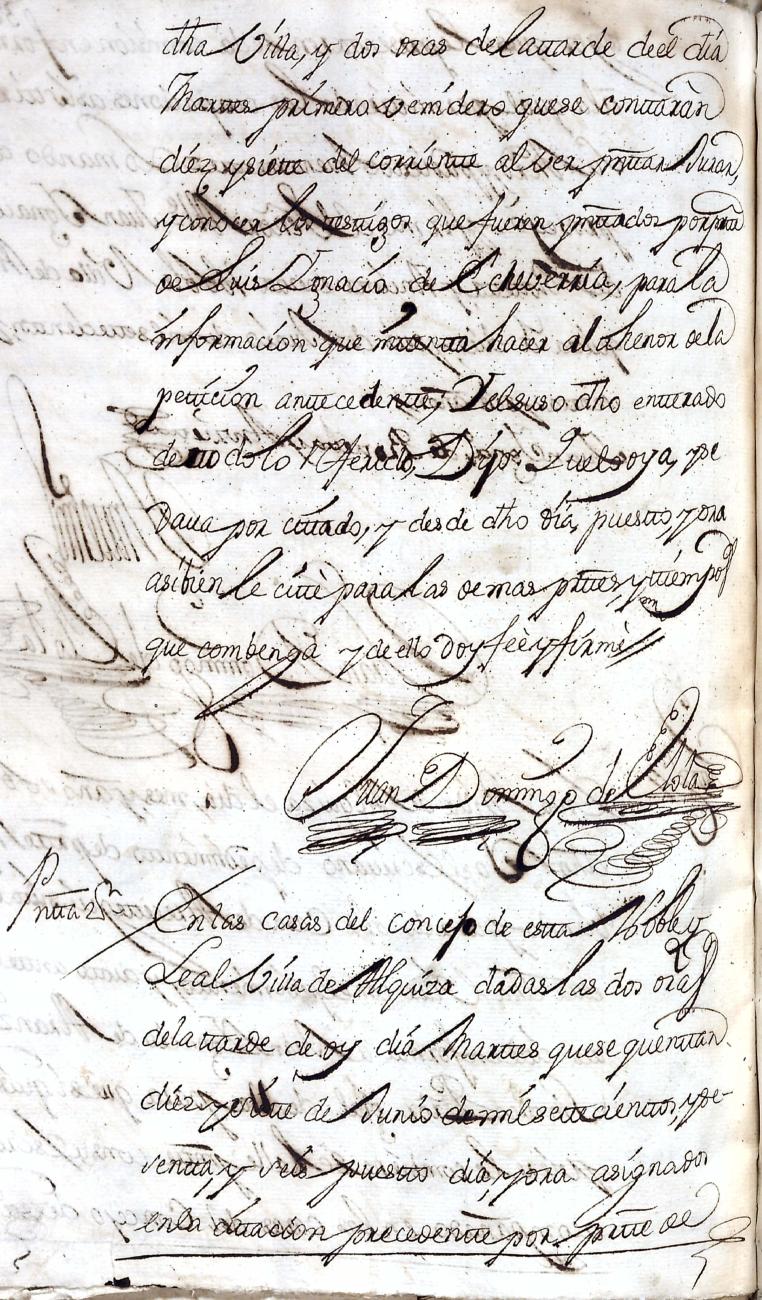 dha Villa, y dos oras de la tarde de el día
Martes primero venidero que se contaràn
diez y siete del corriente àl ver pñtar Jurar,
y conocer los testigos que fueren pñtados por pte
de Luis Ignacio de Echeverria, para la
información que intenta hacer al thenor de la
peticion antecedente; Y el suso dho enterado
de todo lo referido, Dijo: Que lo oya, y se
dava por citado, y desde dho día, puesto y ora
asibien le citè para las demas prtes, y tiempos
que combenga y de ello doy feè y firmè //
Juan Domingo de
Pñta 2ª
En las casas del concejo de esta Noble y
Leal Villa de Alquiza dadas las dos oras
de la tarde de oy día Martes que se quentan
diez y siete de Junio de mil setecientos, y se-
senta, y seis puesto día, y ora asignados
en la citación precedente por prte de